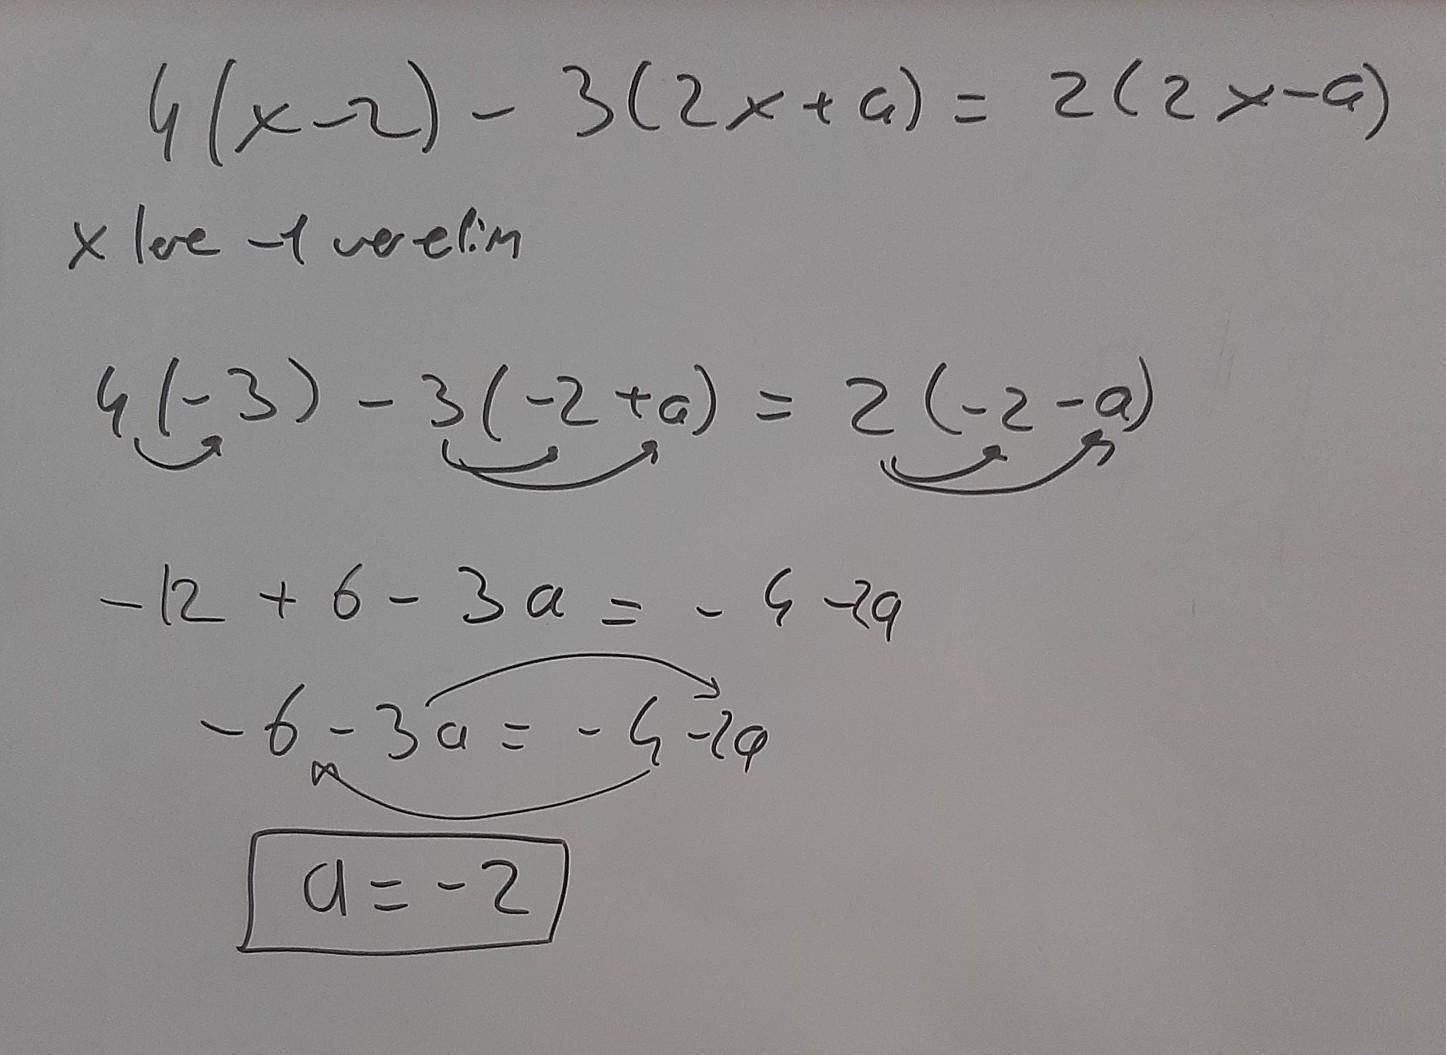 4(x-2) - 3(2x+a) = 2(2x-a)
x lere -1 verelim
4(-3) - 3(-2+a) = 2(-2-a)
-12 + 6 - 3a = -4 -2a
-6 - 3a = -4 -2a
a = -2